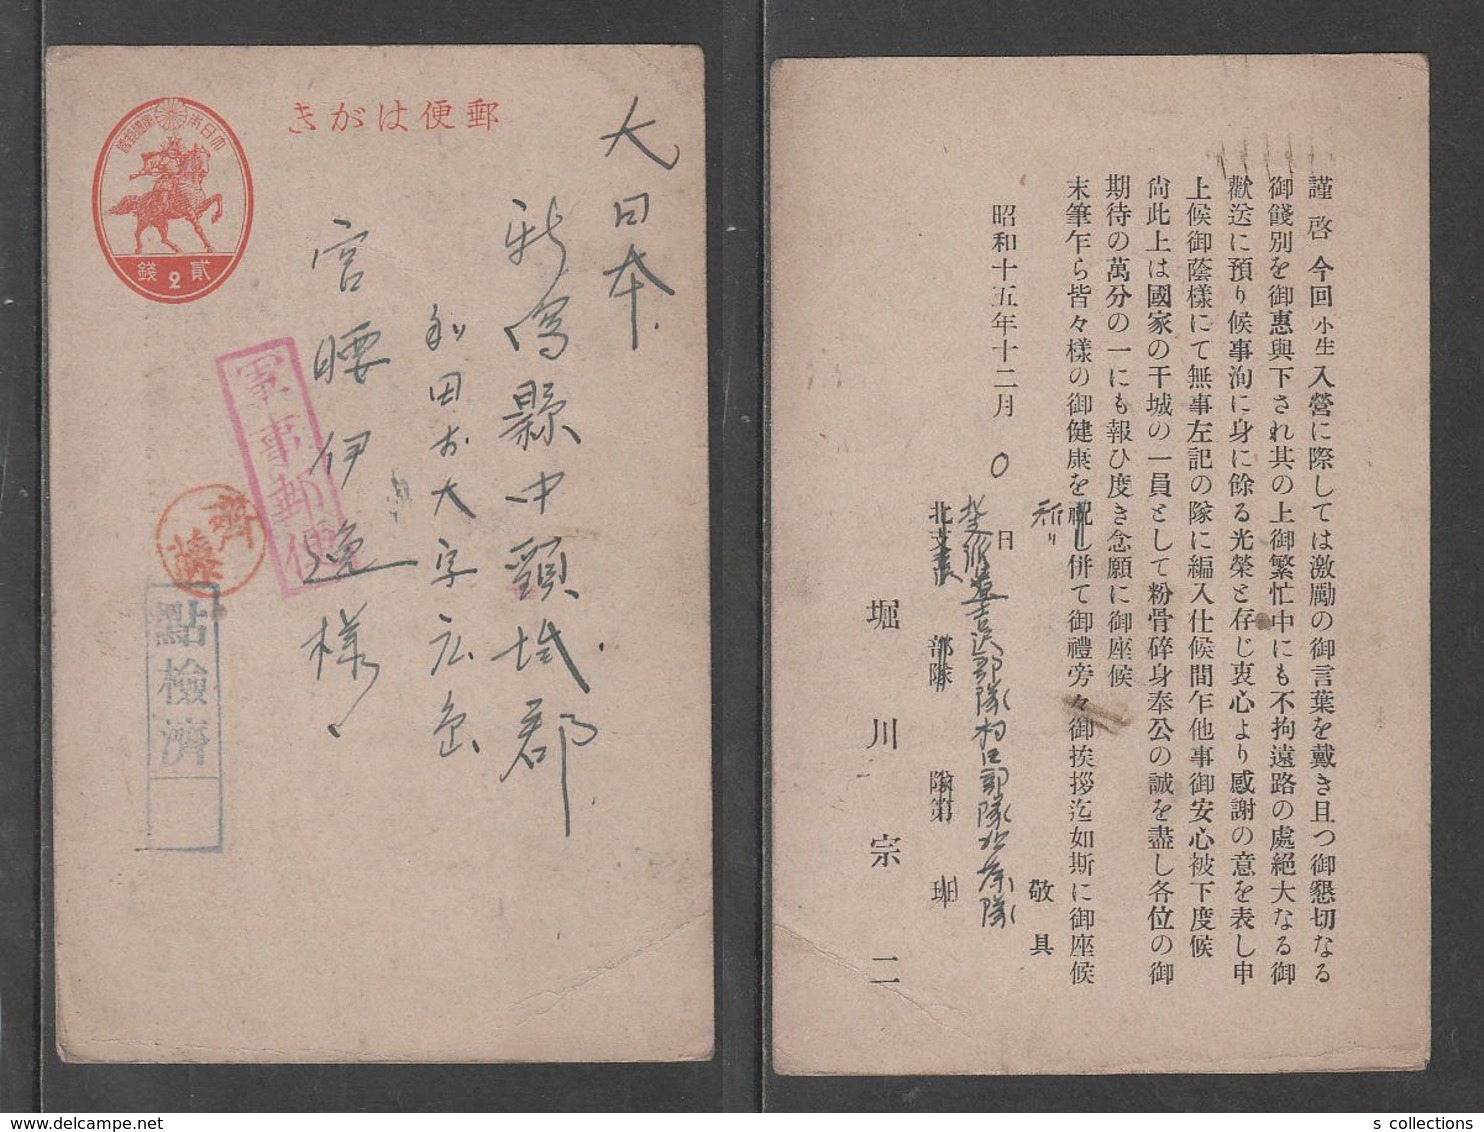 郵便はがき
大日本帝國郵便
貳 2 錢
大日本
新潟縣中頸城郡
和田村大字広島
宮腰伊逸様
軍事郵便
齊藤
點檢濟
謹啓 今回小生入營に際しては激勵の御言葉を戴き且つ御懇切なる
御餞別を御惠與下され其の上御繁忙中にも不拘遠路の處絕大なる御
歡送に預り候事洵に身に餘る光榮と存じ衷心より感謝の意を表し申
上候御蔭樣にて無事左記の隊に編入仕候間乍他事御安心被下度候
尙此上は國家の干城の一員として粉骨碎身奉公の誠を盡し各位の御
期待の萬分の一にも報ひ度き念願に御座候
末筆乍ら皆々樣の御健康を祝し併て御禮旁々御挨拶迄如斯に御座候
祈り
敬具
昭和十五年十二月 0 日
部隊村口部隊
北支 部隊 隊第 班
堀川宗二
s collections